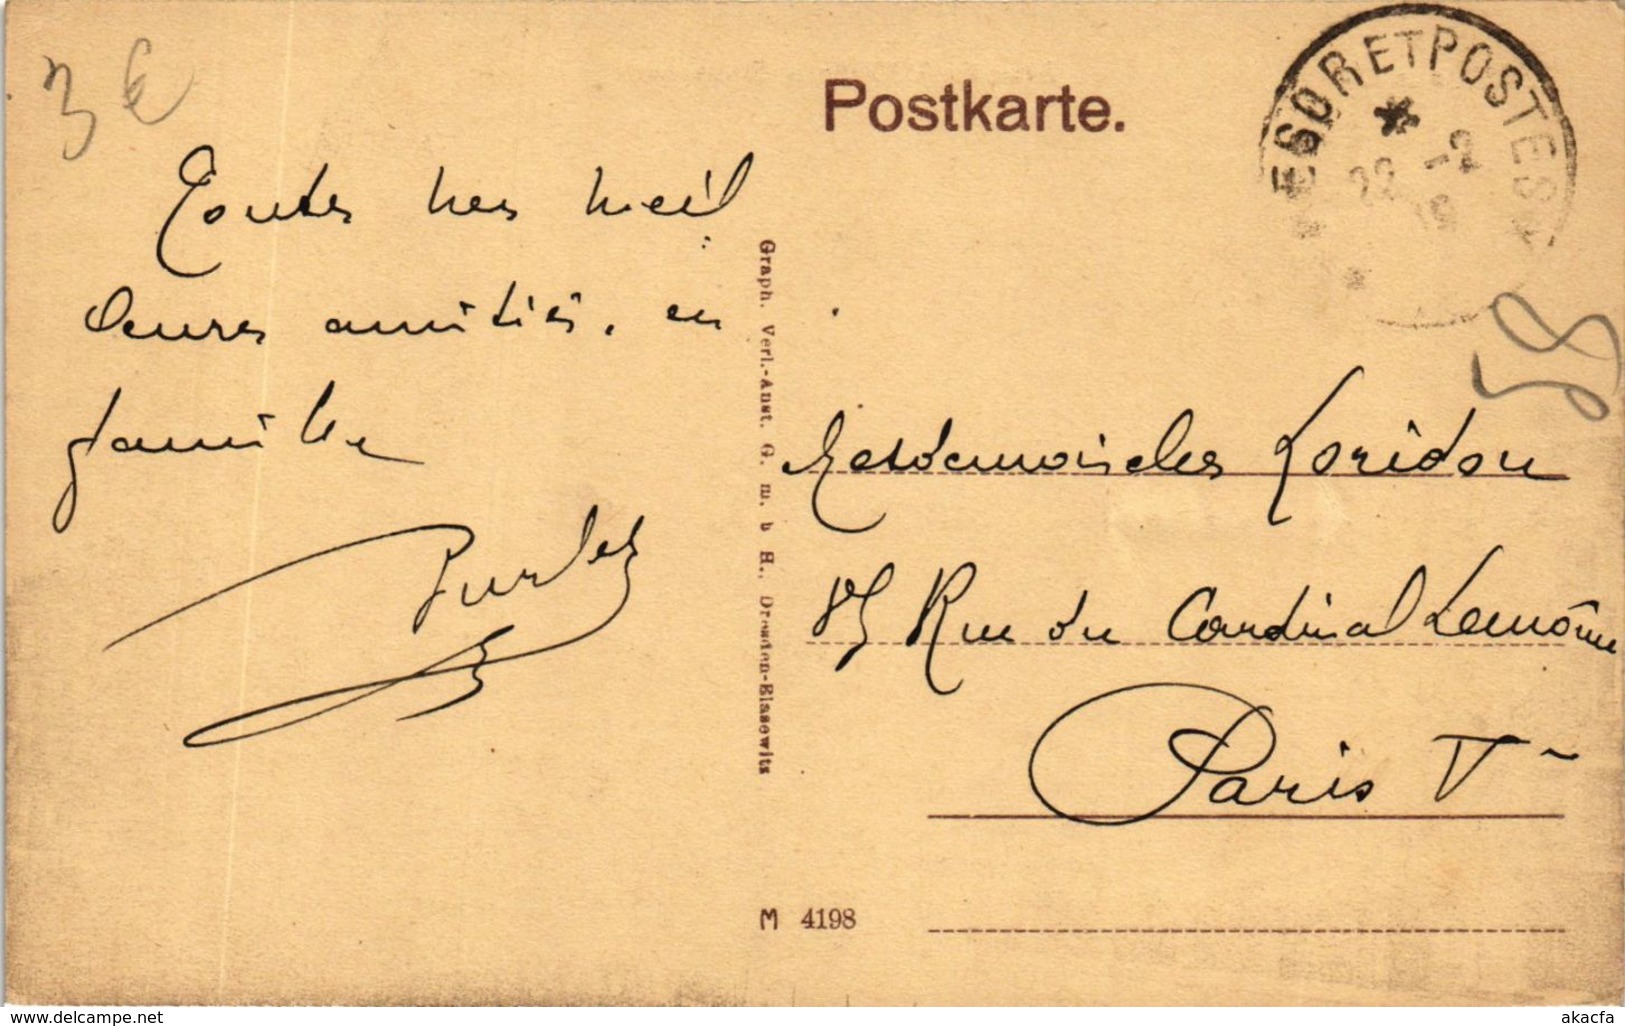 3 €
Postkarte.
TRESOR ET POSTES
22 - 2
19
Toutes nos meil
leures amitiés, en
famille
85
Graph. Verl.-Anst. G. m. b H., Dresden-Blasewitz
Mesdemoiselles Loridon
85 Rue du Cardinal Lemoine
Paris V
M 4198
www.delcampe.net
akacfa